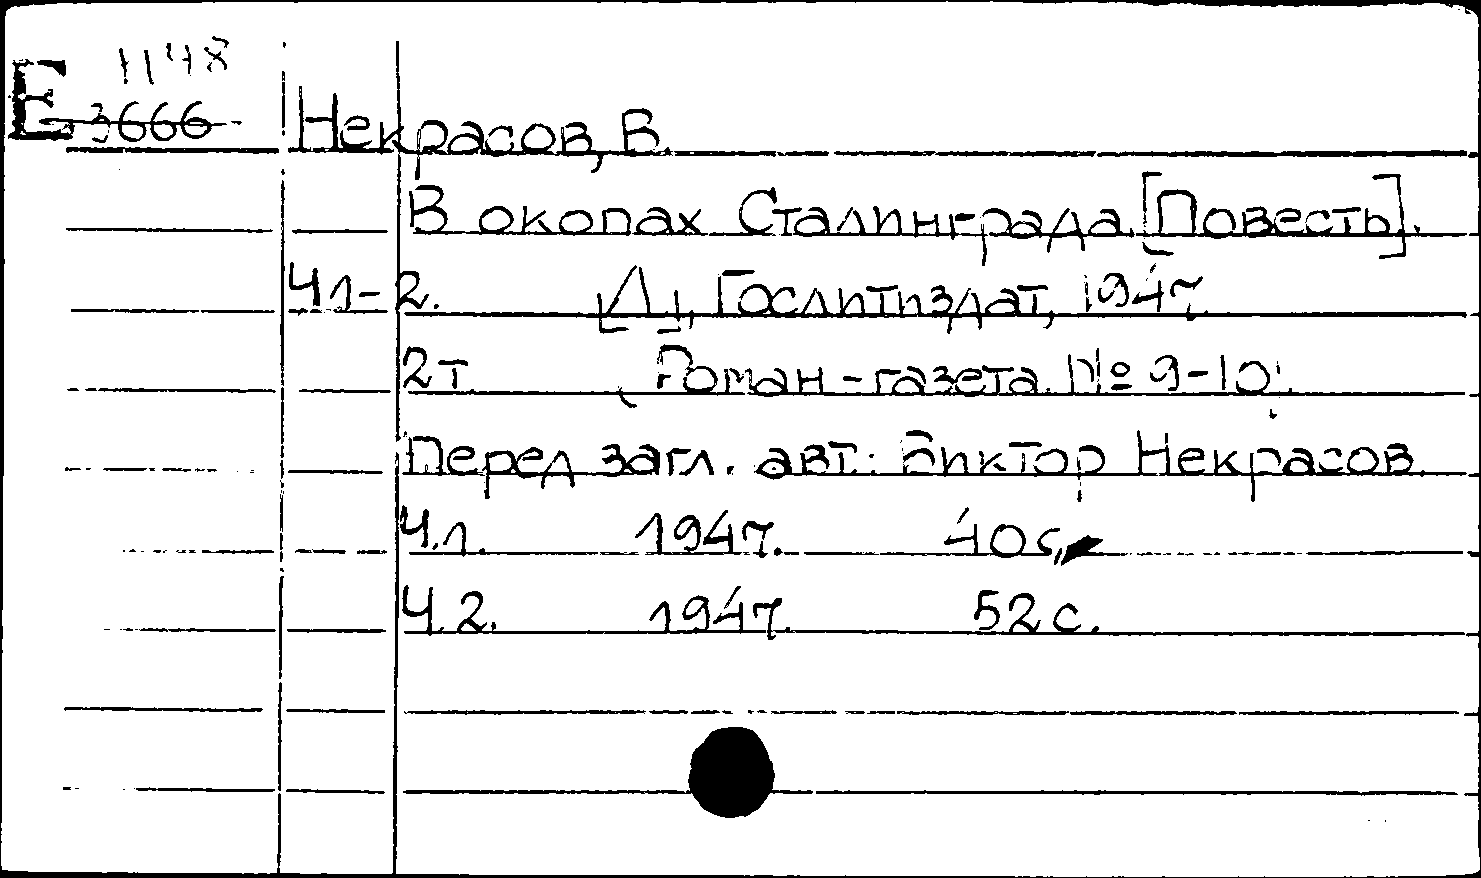 1148
Е 3666
Некрасов, В.
В окопах Сталинграда. [Повесть].
Ч 1-2. [Л], Гослитиздат, 1947
2 т. (Роман-газета. № 9-10).
Перед загл. авт.: Виктор Некрасов.
Ч.1. 1947. 40 с.
Ч.2. 1947. 52 с.